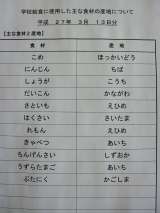 学校給食に使用した主な食材の産地について
平成 27年 3月 13日分
【主な食材と産地】
食材 産地
こめ ほっかいどう
にんじん ちば
しょうが こうち
だいこん かながわ
さといも えひめ
はくさい さいたま
れもん えひめ
きゃべつ あいち
ちんげんさい しずおか
うずらたまご あいち
ぶたにく かごしま